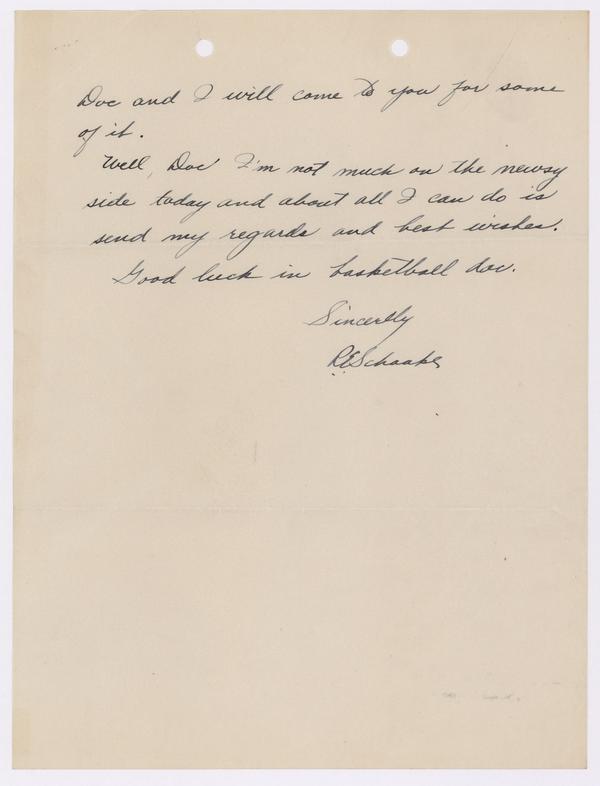 Doc and I will come to you for some
of it.
Well, Doc I'm not much on the newsy
side today and about all I can do is
send my regards and best wishes.
Good luck in basketball doc.
Sincerlly
R.E. Schaake